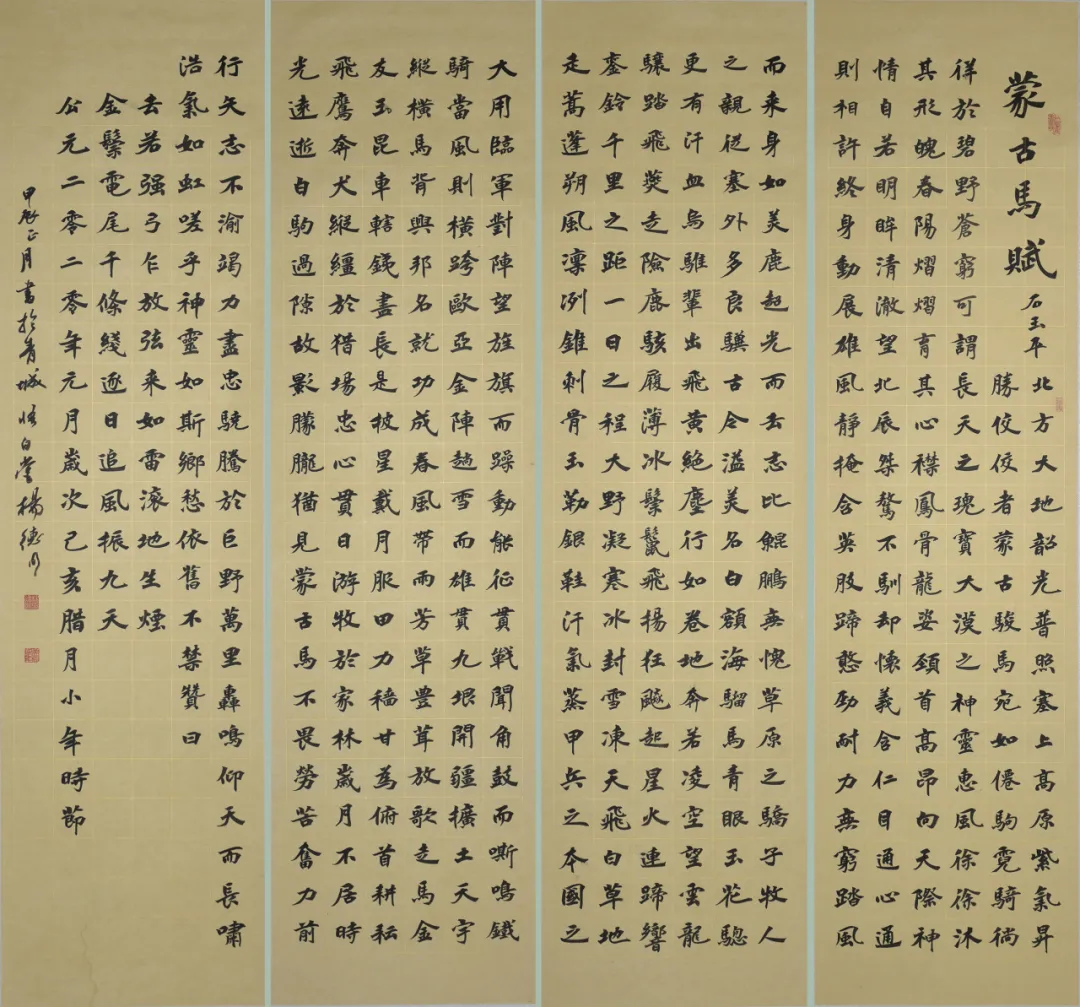 蒙古馬賦
石玉平
北方大地韶光普照塞上高原紫氣昇
勝佼佼者蒙古駿馬宛如僊駒霓騎徜
徉於碧野蒼窮可謂長天之瑰寶大漠之神靈惠風徐徐沐
其形魄春陽熠熠育其心襟鳳骨龍姿頸首高昂向天際神
情自若明眸清澈望北辰桀驁不馴却懷義含仁目通心通
則相許終身動展雄風靜掩含英股蹄憨劲耐力無窮踏風
而来身如美鹿起光而去志比鲲鵬無愧草原之驕子牧人
之親從塞外多良驥古今溢美名白額海騮馬青眼玉花驄
更有汗血烏騅輩出飛黄絕塵行如卷地奔若凌空望雲龍
驤踏飛燕走險鹿駭履薄冰鬃鬣飛揚狂飈起星火連蹄響
鑾鈴千里之距一日之程大野凝寒冰封雪凍天飛白草地
走蒿蓬朔風凛冽錐刺骨玉勒銀鞋汗氣蒸甲兵之本國之
大用臨軍對陣望旌旗而躁動能征貫戰聞角鼓而嘶鳴鐵
騎當風則橫跨歐亞金陣趟雪而雄貫九垠開疆擴土天宇
縱橫馬背興邦名就功成春風帶雨芳草豊茸放歌走馬金
友玉昆車轄銕盡長是披星戴月服田力穡甘為俯首耕耘
飛鷹奔犬縱繮於猎場忠心貫日游牧於家林歲月不居時
光速逝白駒過隙故影朦朧猶見蒙古馬不畏勞苦奮力前
行矢志不渝竭力盡忠驍騰於巨野萬里轟鳴仰天而長嘯
浩氣如虹嗟乎神靈如斯鄉愁依舊不禁贊曰
去若强弓乍放弦来如雷滚地生煙
金鬃電尾千條綫逐日追風振九天
公元二零二零年元月歲次己亥腊月小年時節
甲辰正月書於青城悟白堂楊德明